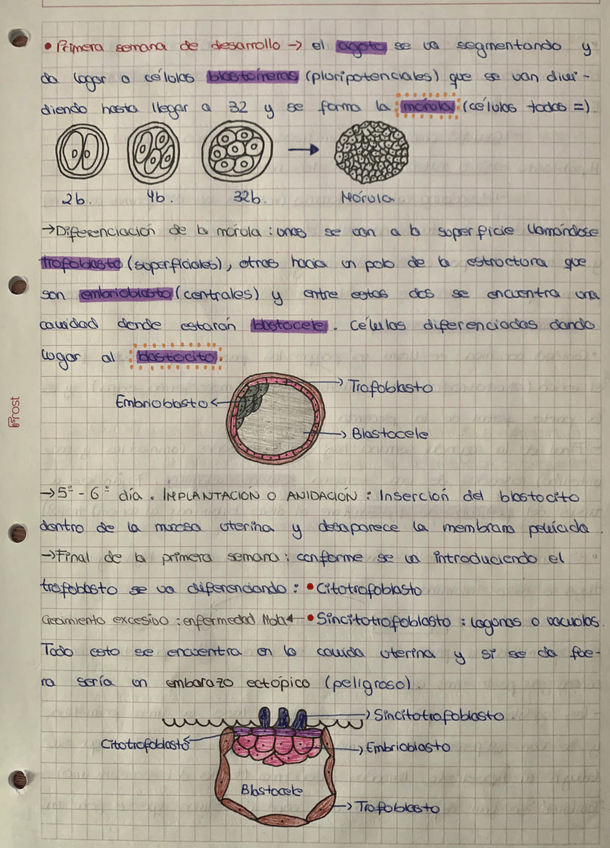 • Primera semana de desarrollo → el cigoto se va segmentando y
da lugar a células blastómeras (pluripotenciales) que se van divi-
diendo hasta llegar a 32 y se forma la mórula (células todas =)
2b. 4b. 32b. Mórula
→ Diferenciación de la mórula: unas se van a la superficie llamándose
trofoblasto (superficiales), otras hacia un polo de la estructura que
son embrioblasto (centrales) y entre estas dos se encuentra una
cavidad donde estarán blastocele. Células diferenciadas dando
lugar al blastocito.
Trofoblasto
Embrioblasto
Blastocele
Frost
→ 5º - 6º día. IMPLANTACIÓN O ANIDACIÓN: Inserción del blastocito
dentro de la mucosa uterina y desaparece la membrana pelúcida.
→ Final de la primera semana: conforme se va introduciendo el
trofoblasto se va diferenciando: • Citotrofoblasto
Crecimiento excesivo: enfermedad • Sincitotrofoblasto: lagunas o vacuolas.
Todo esto se encuentra en la cavida uterina y si se da fue-
ra sería un embarazo ectópico (peligroso).
Sincitotrofoblasto
Citotrofoblasto
Embrioblasto
Blastocele
Trofoblasto